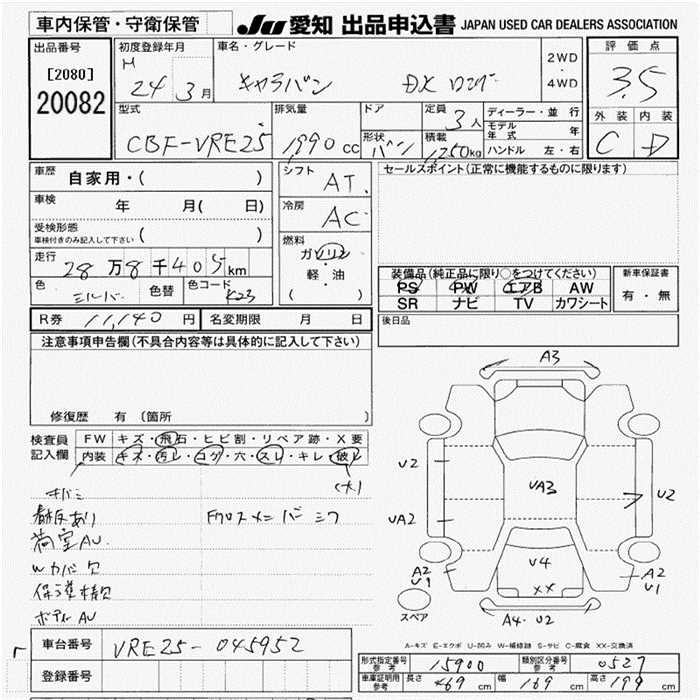 車内保管・守衛保管
JU 愛知 出品申込書 JAPAN USED CAR DEALERS ASSOCIATION
出品番号
[2080]
20082
初度登録年月
H 24年 3月
車名・グレード
キャラバン DX ロング
2WD
・
4WD
評価点
3.5
外装 内装
C D
型式
CBF-VRE25
排気量
1990cc
ドア
形状
バン
定員
3人
積載
1250kg
ディーラー・並行
モデル年式 年
ハンドル 左・右
車歴
自家用・( )
車検
年 月( 日)
受検形態
車検付きのみ記入して下さい ( )
走行
28万8千405km
色
シルバー
色替
色コード
K23
シフト
AT
冷房
AC
燃料
ガソリン
・
軽・油
( )
セールスポイント(正常に機能するものに限ります)
装備品(純正品に限り○をつけてください)
PS PW エアB AW
SR ナビ TV カワシート
新車保証書
有・無
R券 11,140 円
名変期限 月 日
後日品
注意事項申告欄(不具合内容等は具体的に記入して下さい)
修復歴 有(箇所
検査員
記入欄
FW キズ・飛石・ヒビ割・リペア跡・X要
内装 キズ・汚レ・コゲ・穴・スレ・キレ・破レ
(大)
キバミ
看板あり
荷室AU
Wカバ欠
保、記欠
ボディAU
A3
U2
UA2
UA3
U2
U4
XX
A2
U1
A2
U1
A4・U2
スペア
A-キズ E-エクボ U-凹み W-補修跡 S-サビ C-腐食 XX-交換済
車台番号
VRE25-045952
登録番号
形式指定番号
参考
15900
類別区分番号
参考
0527
車庫証明用
参考
長さ 469cm
幅 169cm
高さ 199cm